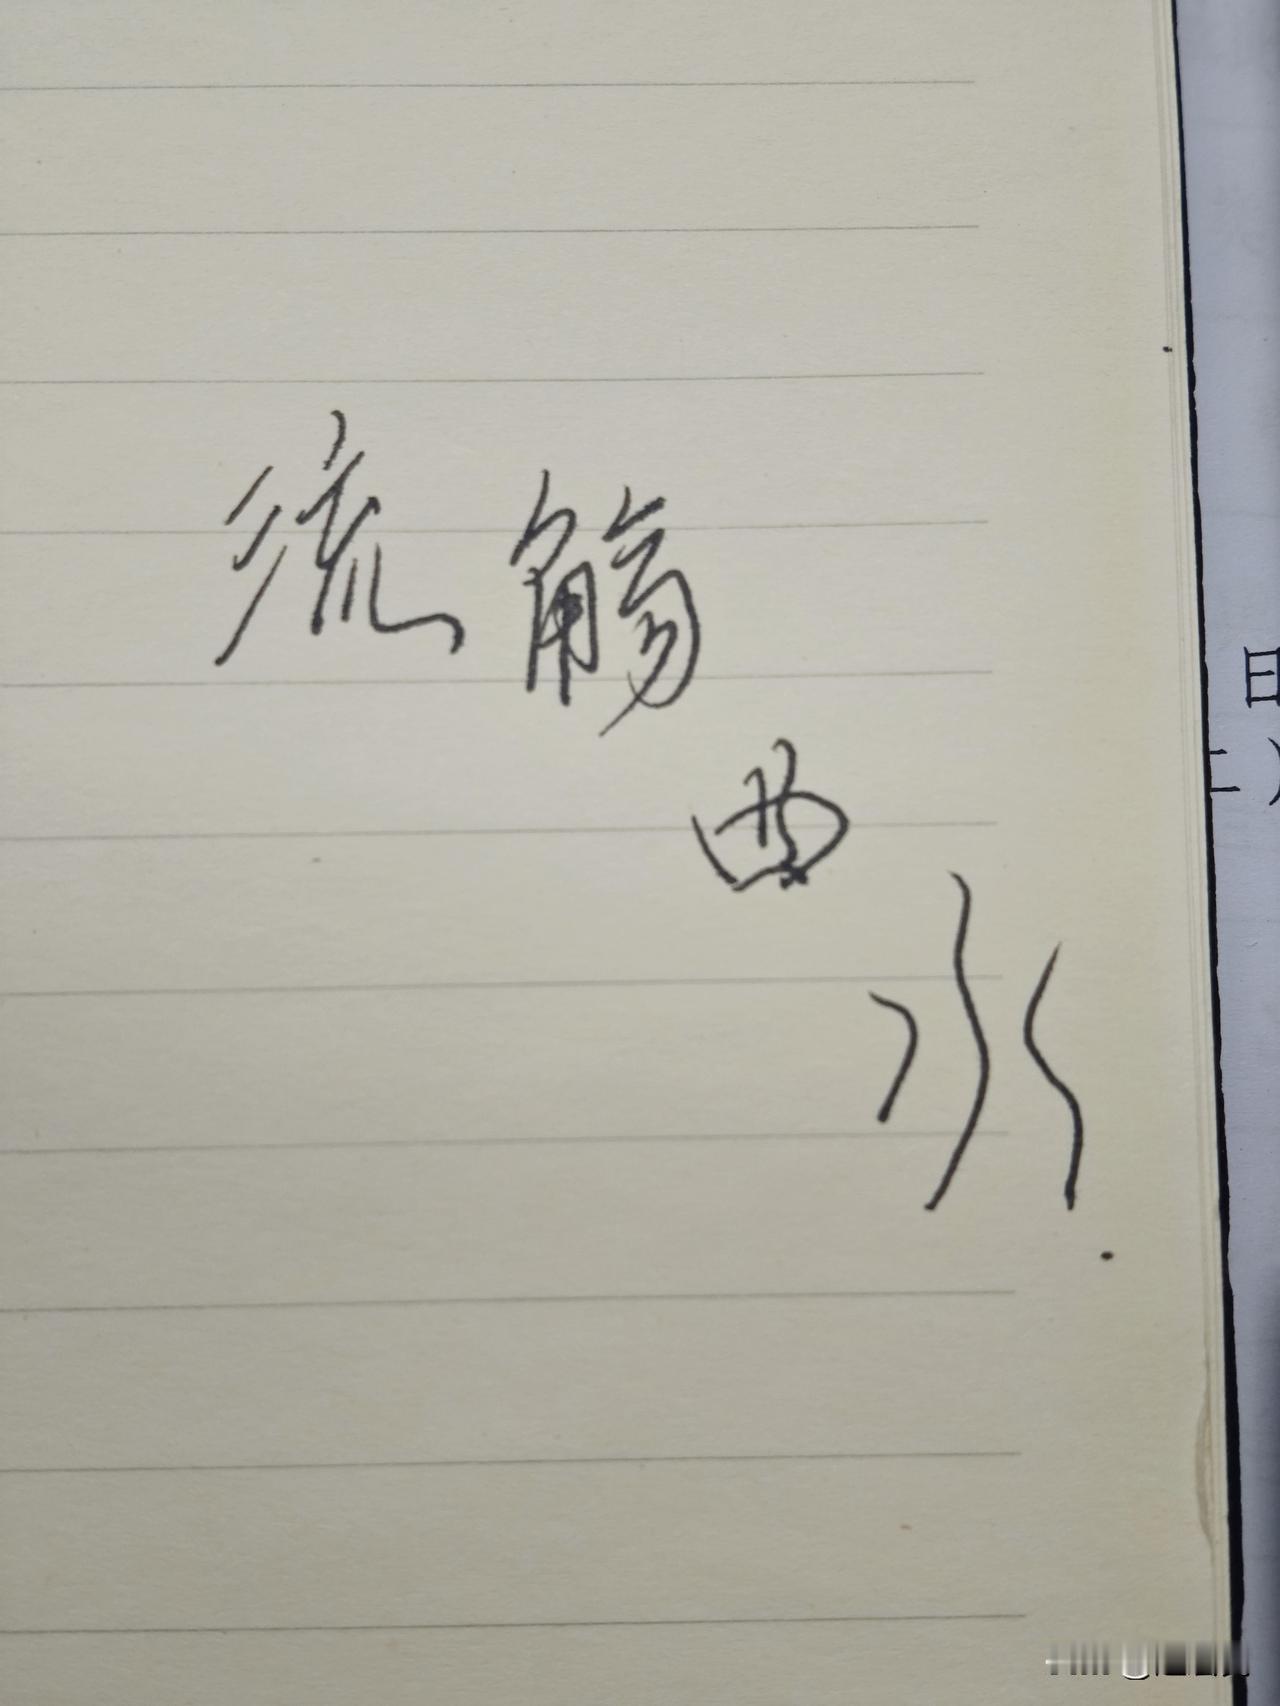 流觞
曲
水
日
二）